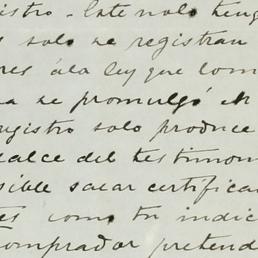 istro. Este nolo teng
s solo se registran
res á la ley que com
a se promulgó en
egistro solo produce
calce del testimon
sible sacar certifica
tes como tu indic
comprador pretend